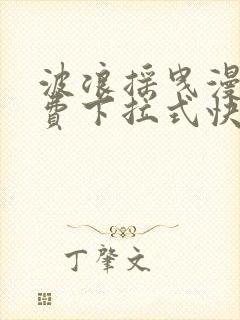 波浪摇曳漫
费下拉式快
丁肇文